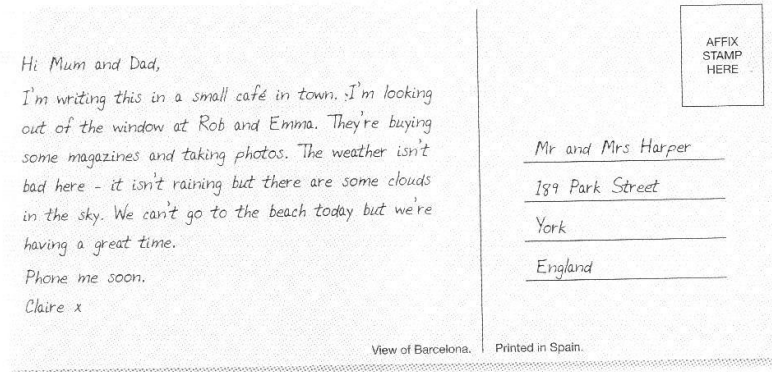 Hi Mum and Dad,
I'm writing this in a small café in town. I'm looking
out of the window at Rob and Emma. They're buying
some magazines and taking photos. The weather isn't
bad here - it isn't raining but there are some clouds
in the sky. We can't go to the beach today but we're
having a great time.
Phone me soon.
Claire x
AFFIX
STAMP
HERE
Mr and Mrs Harper
189 Park Street
York
England
View of Barcelona.
Printed in Spain.